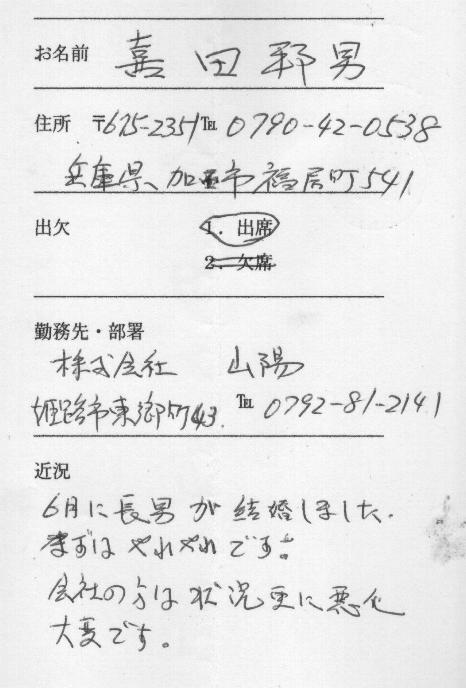 お名前 嘉田邦男
住所 〒675-2351 TEL 0790-42-0538
兵庫県加西市福居町541
出欠 1. 出席
2. 欠席
勤務先・部署
株式会社 山陽
姫路市東郷町43. TEL 0792-81-2141
近況
6月に長男が結婚しました.
まずはやれやれです。
会社の方は状況更に悪化
大変です。